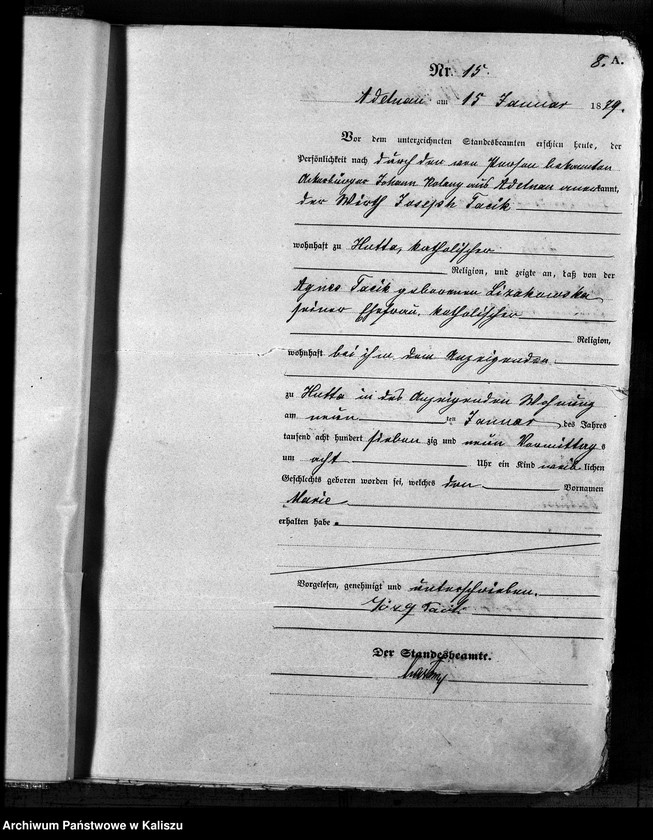 8. A.
Nr. 15.
Adelnau am 15 Januar 1879.
Vor dem unterzeichneten Standesbeamten erschien heute, der
Persönlichkeit nach durch den von Person bekannten
Ackerbürger Johann aus Adelnau anerkannt,
der Wirth Joseph Tacik
wohnhaft zu Hutta, katholischer
Religion, und zeigte an, daß von der
Agnes Tacik geborenen Lizakowska
seiner Ehefrau, katholischer
Religion,
wohnhaft bei ihm dem Anzeigenden
zu Hutta in des Anzeigenden Wohnung
am neun ten Januar des Jahres
tausend acht hundert sieben zig und neun Vormittags
um acht Uhr ein Kind weiblichen
Geschlechts geboren worden sei, welches den Vornamen
Marie
erhalten habe.
Vorgelesen, genehmigt und unterschrieben.
Tacik
Der Standesbeamte.
Archiwum Państwowe w Kaliszu